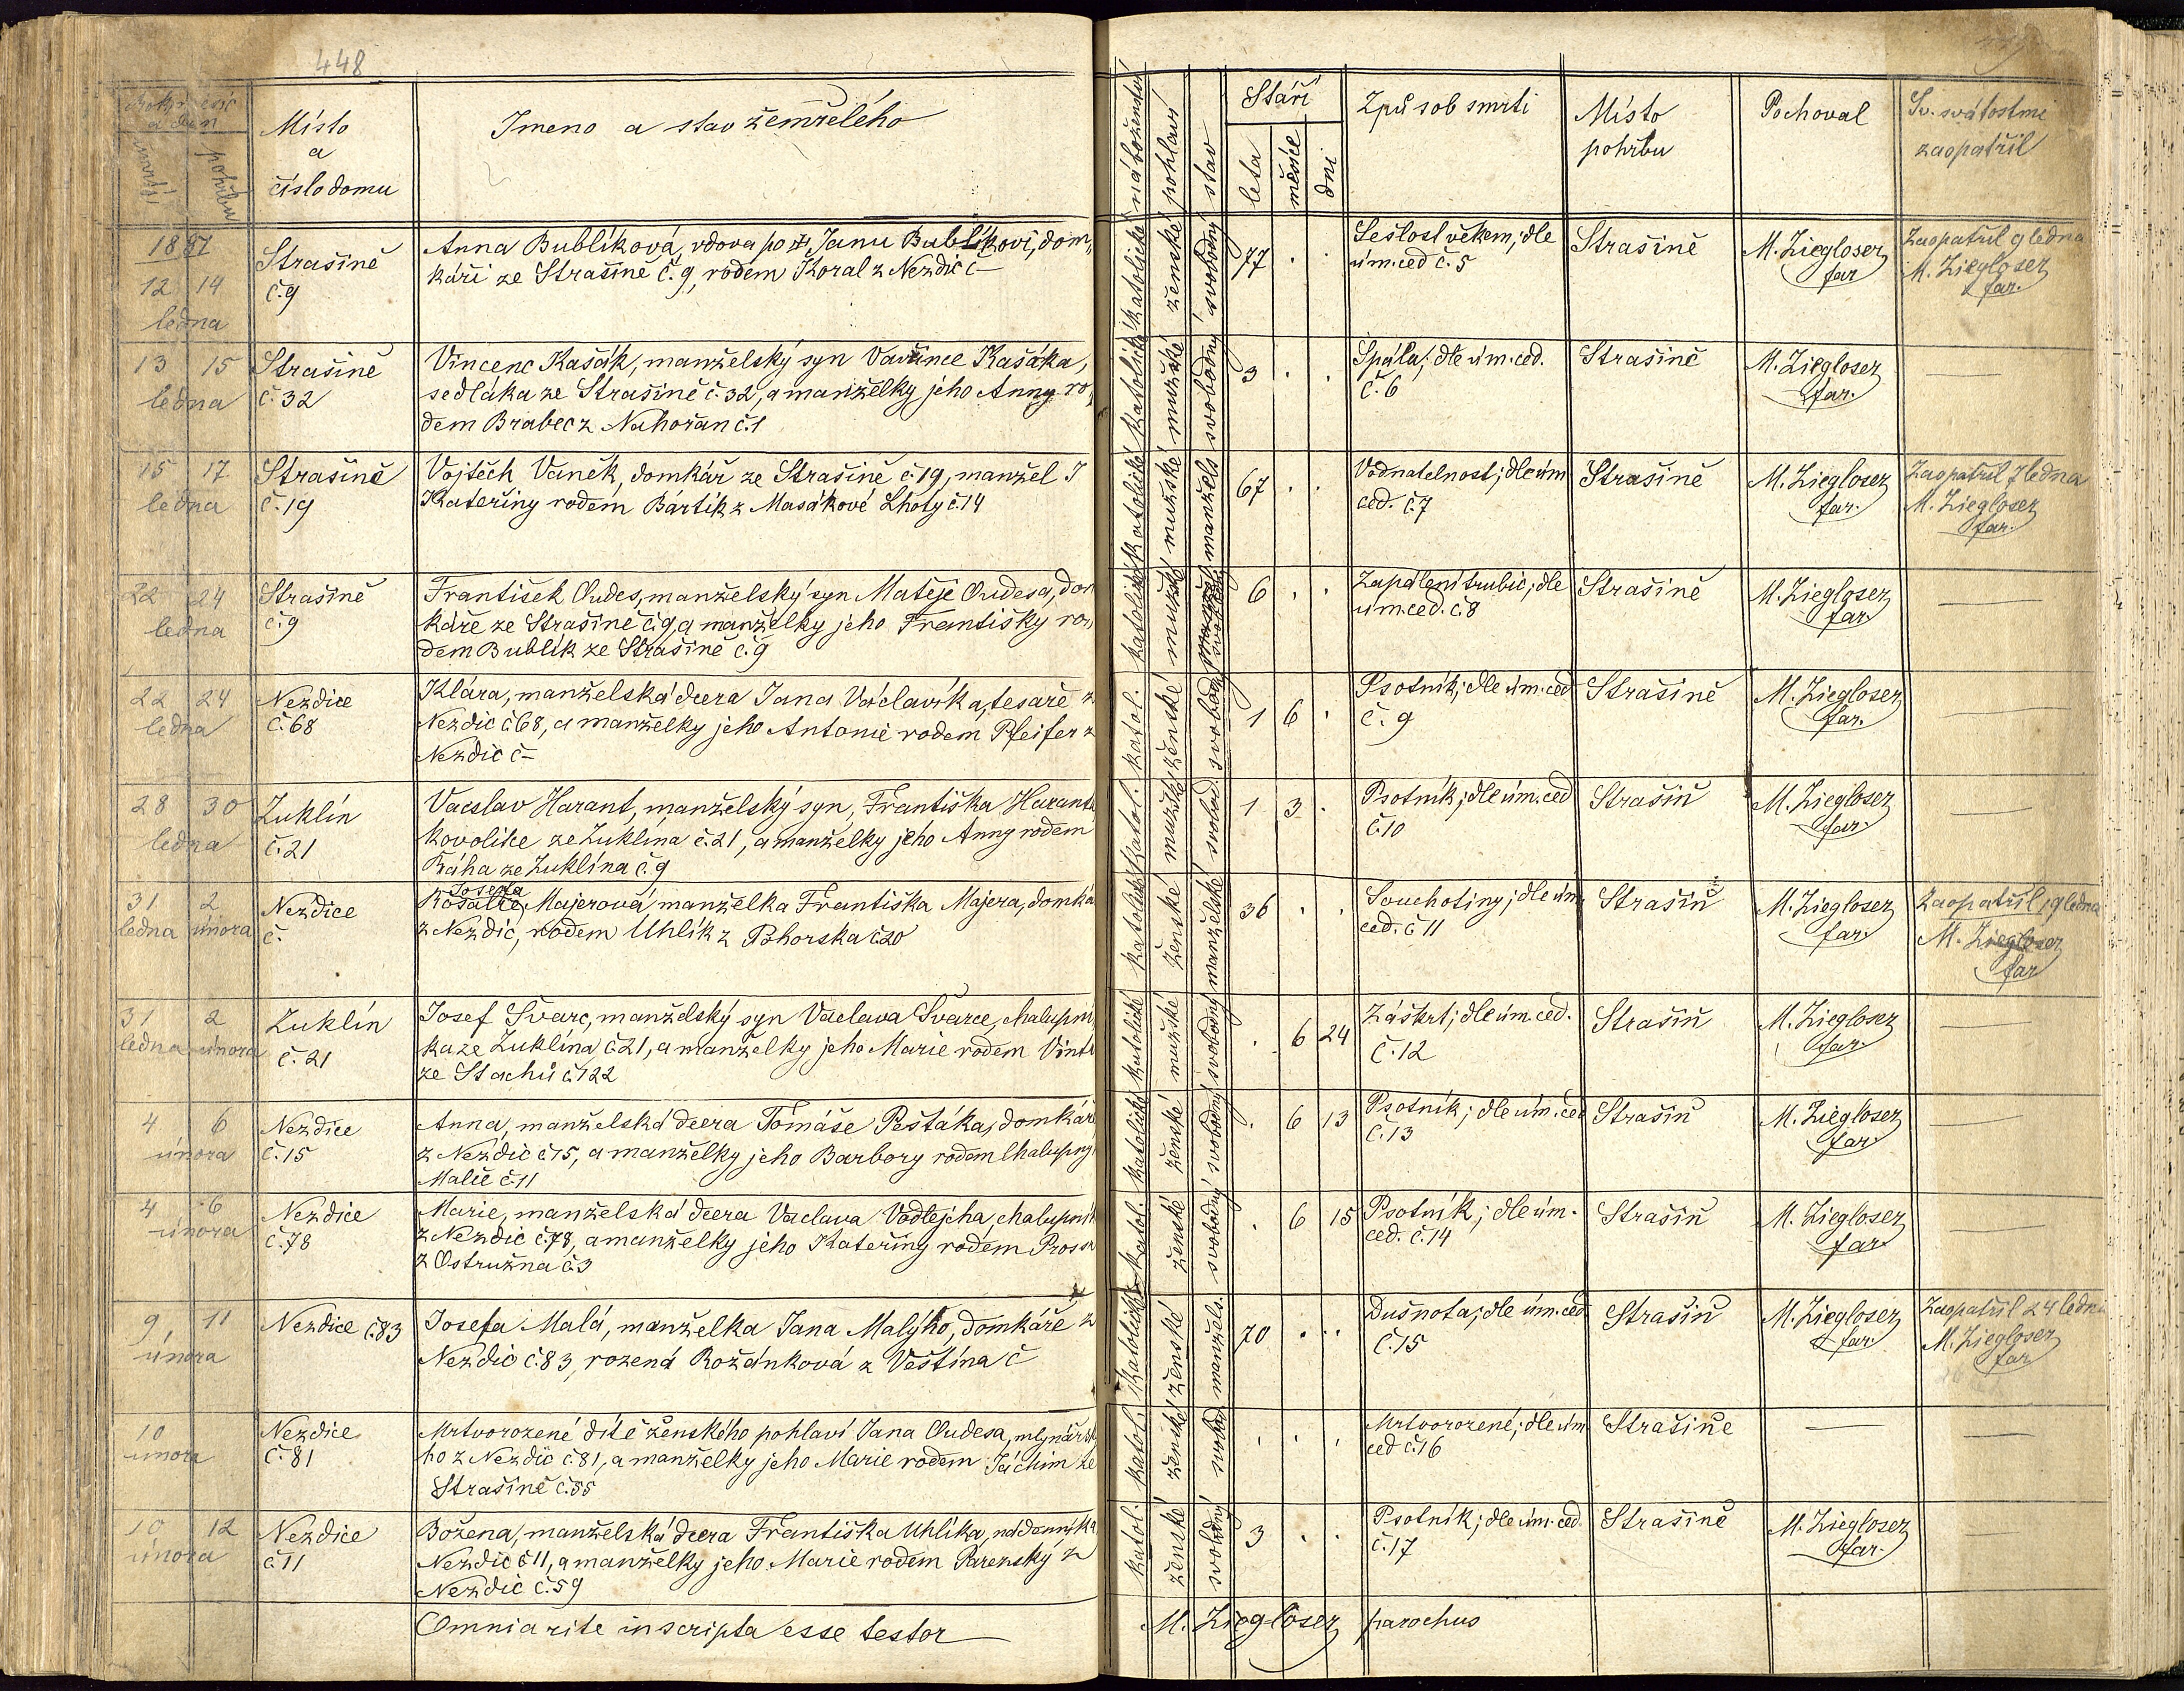 448
Rok měsíc
a den
úmrtí
pohřbu
Místo
a
číslo domu
Jmeno a stav zemřelého
náboženství
pohlaví
stav
Stáří
leta
měsíce
dni
Způsob smrti
Místo
pohřbu
Pochoval
Sv. svátostmi
zaopatřil
1887
12 14
ledna
Strašině
č.9
Anna Bublíková, vdova po Janu Bublíkovi, dom„
káři ze Strašině č. 9, rodem Koral z Nezdic č –
katolické
ženské
svobodný
77 . .
Sešlost věkem; dle
úm. ced č. 5
Strašině
M. Ziegloser
far
Zaopatřil 9 ledna
M. Ziegloser
far.
13 15
ledna
Strašině
č. 32
Vincenc Kasák, manželský syn Vavřince Kašáka,
sedláka ze Strašině č. 32, a manželky jeho Anny ro„
dem Brabec z Nahořan č.1
katolické
mužské
svobodný
3 . .
Spála; dle úm. ced.
č. 6
Strašině
M. Ziegloser
far.
—
15 17
ledna
Strašině
č. 19
Vojtěch Vaněk, domkář ze Strašině č. 19, manžel
Kateřiny rodem Bártík z Masákové Lhoty č. 14
katolické
mužské
manžels
67 . .
Vodnatelnost; dle úm
ced. č. 7
Strašině
M. Ziegloser
far.
Zaopatřil 7 ledna
M. Ziegloser
far.
22 24
ledna
Strašině
č. 9
František Oudes, manželský syn Matěje Oudesa, dom
káře ze Strašině č. 9, a manželky jeho Františky ro„
dem Bublík ze Strašině č. 9
katolické
mužské
svobodný
6 . .
Zapálení trubic; dle
úm. ced. č. 8
Strašině
M. Ziegloser
far.
—
22 24
ledna
Nezdice
č. 68
Klára, manželská dcera Jana Václavíka, tesaře z
Nezdic č. 68, a manželky jeho Antonie rodem Pfeifer z
Nezdic č –
katol.
ženské
svobodný
1 6 .
Psotník; dle úm. ced
č. 9
Strašině
M. Ziegloser
far.
—
28 30
ledna
Zuklín
č. 21
Vacslav Harant, manželský syn, Františka Haranta
kovolike ze Zuklína č. 21, a manželky jeho Anny rodem
Bláha ze Zuklína č. 9
katol.
mužské
svobod.
1 3 .
Psotník; dle úm. ced
č. 10
Strašiň
M. Ziegloser
far.
—
31 2
ledna února
Nezdice
č.
Josefa
Rosalie Majerová manželka Františka Majera, domká
z Nezdic, rodem Uhlík z Pohorska č. 20
katolické
ženské
manželské
36 . .
Souchotiny; dle úm.
ced. č 11
Strašiň
M. Ziegloser
far.
Zaopatřil 19 ledna
M. Ziegloser
far
31 2
ledna února
Zuklín
č. 21
Josef Švarc, manželský syn Vaclava Švarce, chalupní
ka ze Zuklína č. 21, a manželky jeho Marie rodem Vint
ze Stachů č. 122
katolické
mužské
svobodný
. 6 24
Záškrt; dle úm. ced.
č. 12
Strašiň
M. Ziegloser
far.
—
4 6
února
Nezdice
č. 15
Anna, manželská dcera Tomáše Pešťáka, domkáře
z Nezdic č. 15, a manželky jeho Barbory rodem Chalupny
Malče č. 11
katolické
ženské
svobodný
. 6 13
Psotník; dle úm. ced
č. 13
Strašiň
M. Ziegloser
far
—
4 6
února
Nezdice
č. 78
Marie, manželská dcera Vaclava Vodlejcha, chalupník
z Nezdic č. 78, a manželky jeho Kateřiny rodem
z Ostružna č. 3
katol.
ženské
svobodný
. 6 15
Psotník; dle úm.
ced. č. 14
Strašiň
M. Ziegloser
far
—
9 11
února
Nezdice č. 83
Josefa Malá, manželka Jana Malýho, domkáře z
Nezdic č. 83, rozená Rožánková z Veštína č
katolické
ženské
manžels.
70 . .
Dušnota; dle úm. ced
č. 15
Strašiň
M. Ziegloser
far
Zaopatřil 24 ledna
M. Ziegloser
far
10
února
Nezdice
č. 81
Mrtvorozené dítě ženského pohlaví Jana Oudesa, mlynářsk
ho z Nezdic č. 81, a manželky jeho Marie rodem Jáchim ze
Strašině č. 55
katol.
ženské
svobod
. . .
Mrtvorozené; dle úm
ced č. 16
Strašině
—
—
10 12
února
Nezdice
č. 11
Božena, manželská dcera Františka Uhlíka, nádenníka
Nezdic č. 11, a manželky jeho Marie rodem Parenský z
Nezdic č. 59
katol.
ženské
svobodný
3 . .
Psotník; dle úm. ced.
č. 17
Strašině
M. Ziegloser
far.
—
Omnia rite inscripta esse testor
M. Ziegloser parochus